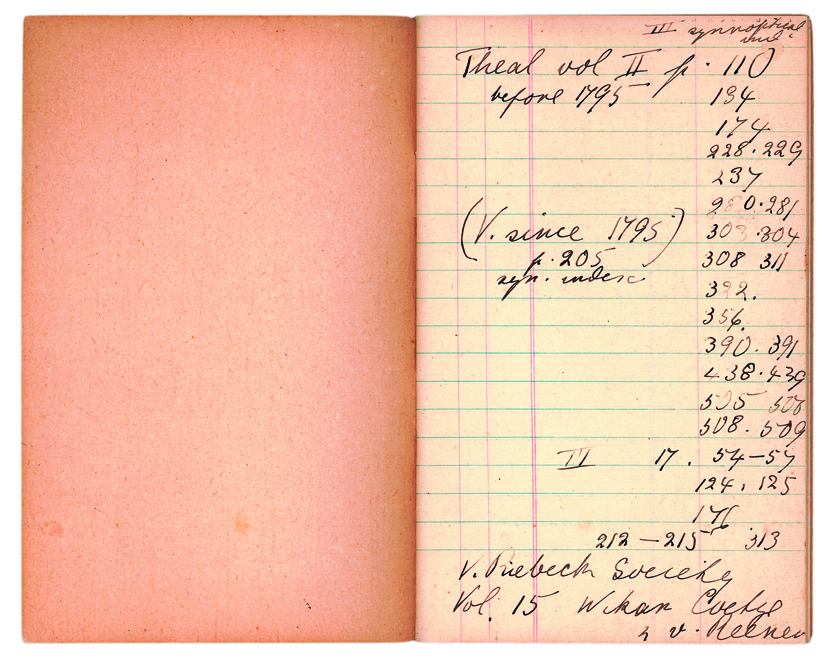 III synnoptical
ind.
Theal vol II p. 110
before 1795 134
174
228.229
237
280.281
(V. since 1795) 303.304
p. 205 308 311
syn. index
392.
356.
390.391
438.439
505 506
508.509
III 17. 54-57
124.125
176
212-215 313
V. Riebeck Society
Vol. 15 Wikar Coetze
& v. Reenen